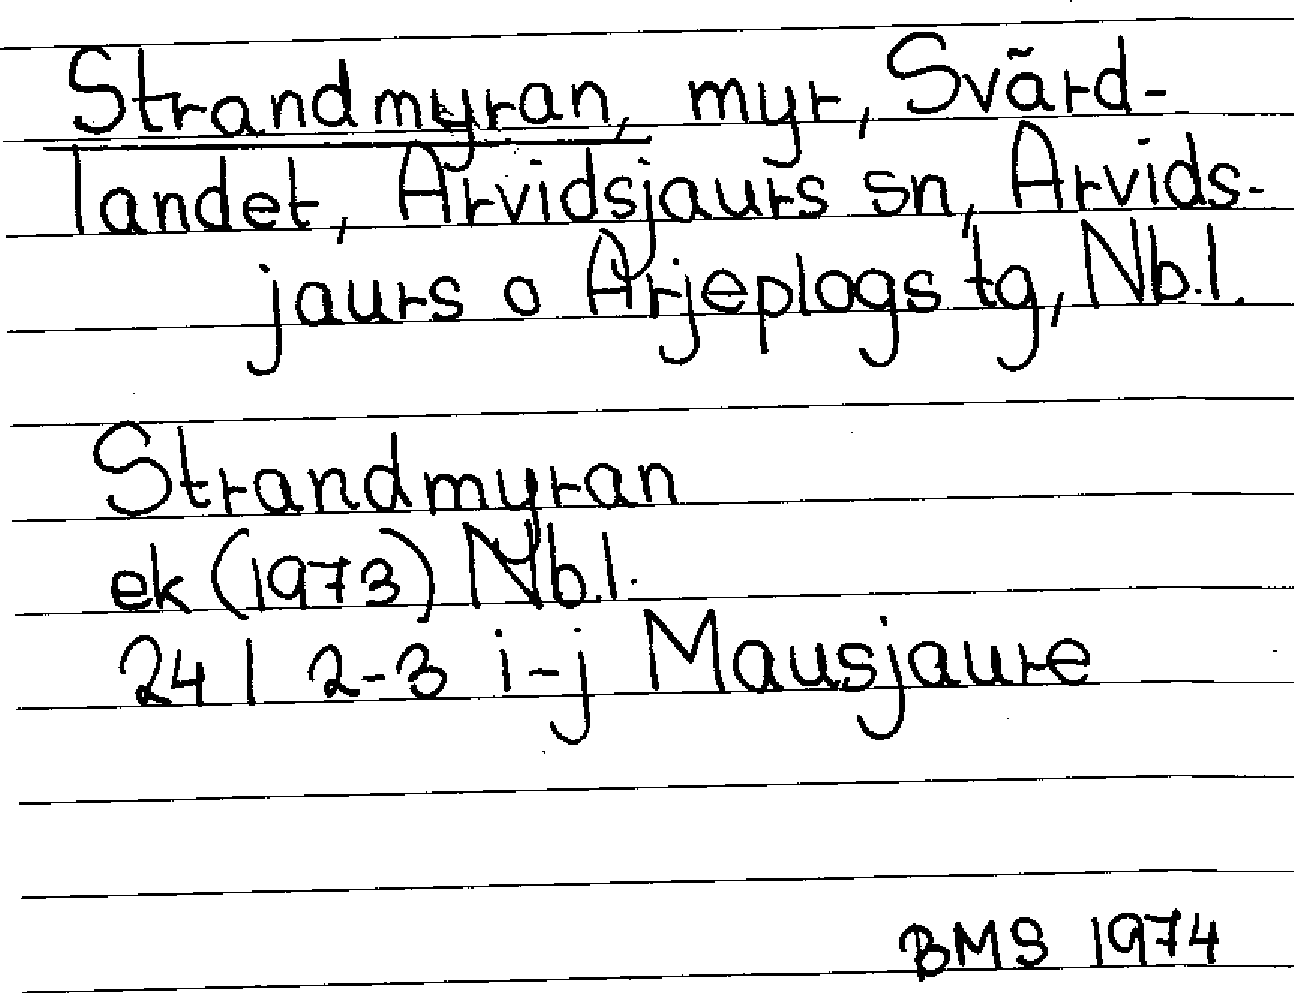 Strandmyran, myr, Svärd-
landet, Arvidsjaurs sn, Arvids-
jaurs o Arjeplogs tg, Nb.l.
Strandmyran
ek (1973) Nb.l.
24 I 2-3 i-j Mausjaure
BMS 1974